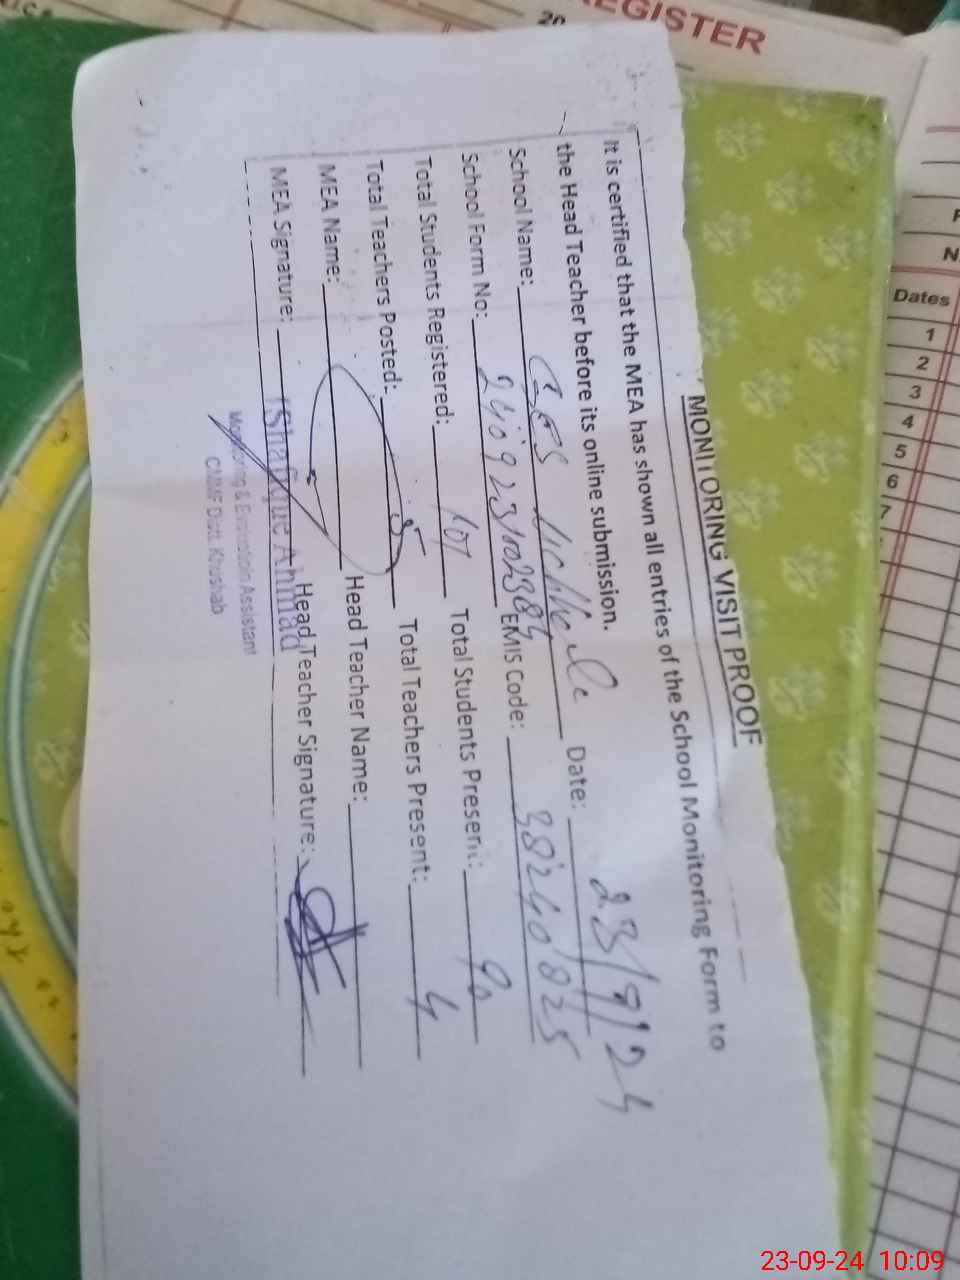 REGISTER
MONITORING VISIT PROOF
It is certified that the MEA has shown all entries of the School Monitoring Form to
the Head Teacher before its online submission.
School Name: Date: 23/9/24
School Form No: EMIS Code: 38240825
Total Students Registered: 107 Total Students Present: 90
Total Teachers Posted: 5 Total Teachers Present: 4
MEA Name: Head Teacher Name:
MEA Signature: Head Teacher Signature:
Ishafque Ahmad
Monitoring & Evaluation Assistant
CMMF Distt. Khushab
Dates
1
2
3
4
5
6
7
23-09-24 10:09